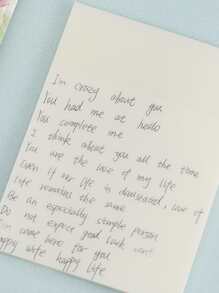 I'm crazy about you
You had me at hello
You complete me
I think about you all the time
You are the love of my life
Even if our life is dominated, love of
life remained the same
Be an especially simple person
Do not expect good luck
I'm come here for you
Happy wife happy life